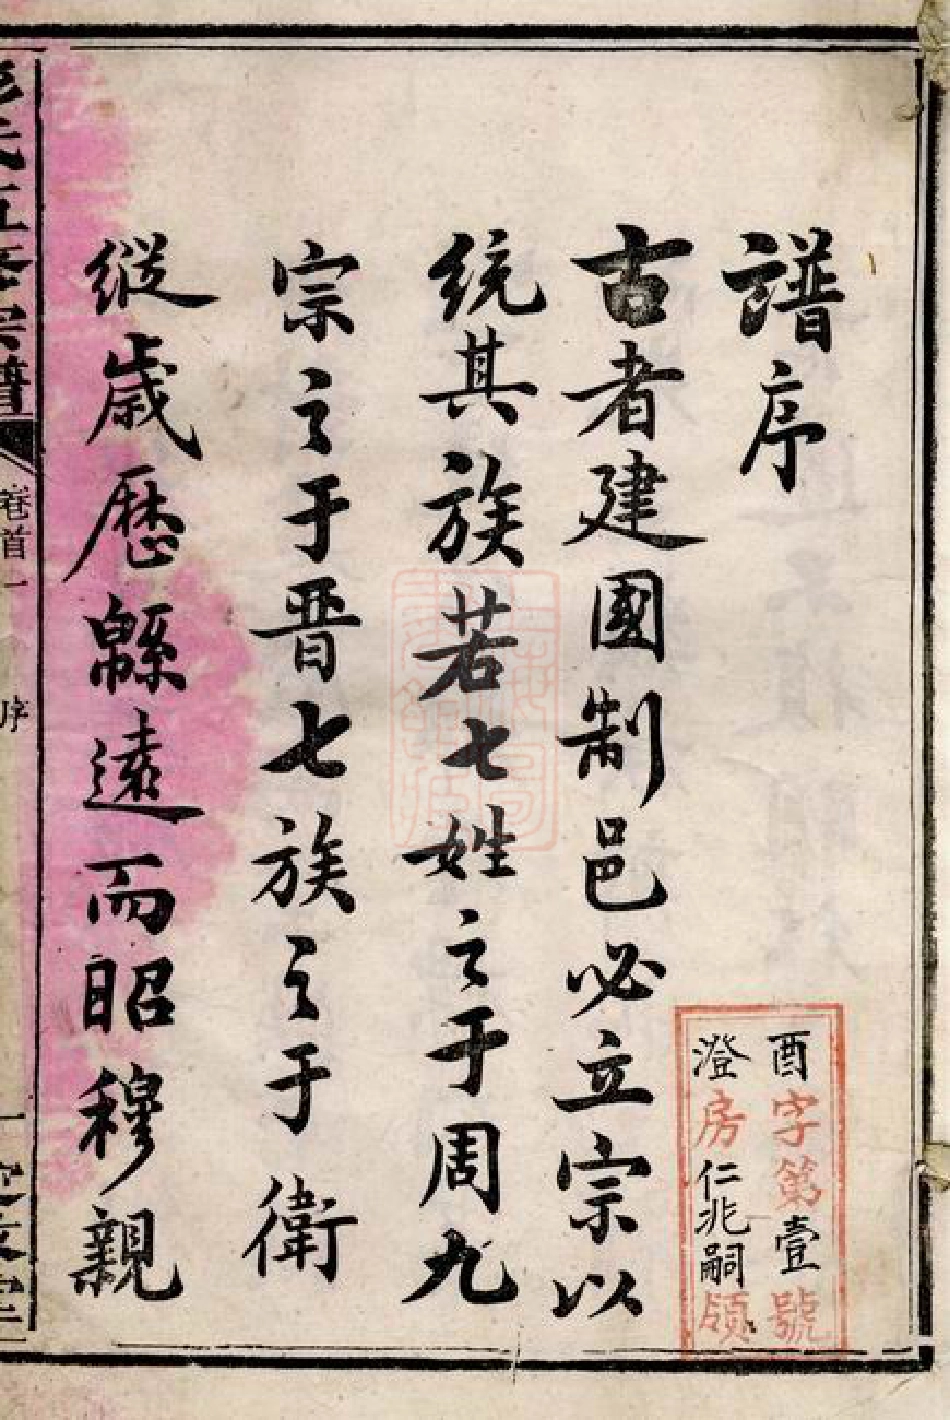 譜序
古者建國制邑必立宗以
統其族若七姓之于周九
宗之于晋七族之于衛
縱歲歷緜遠而昭穆親
酉字第壹號
澄房仁兆嗣領
氏五修宗譜
卷首一
序